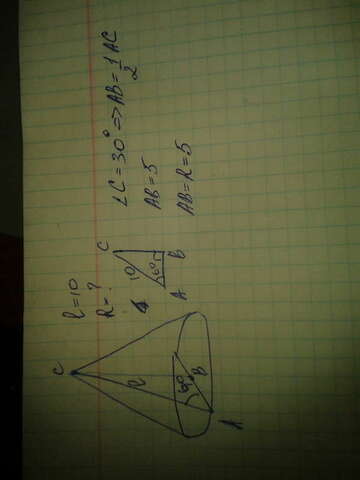 l=10
R=?
C
10
60°
A
B
∠C=30°=>AB=1/2 AC
AB=5
AB=R=5
C
60°
B
A